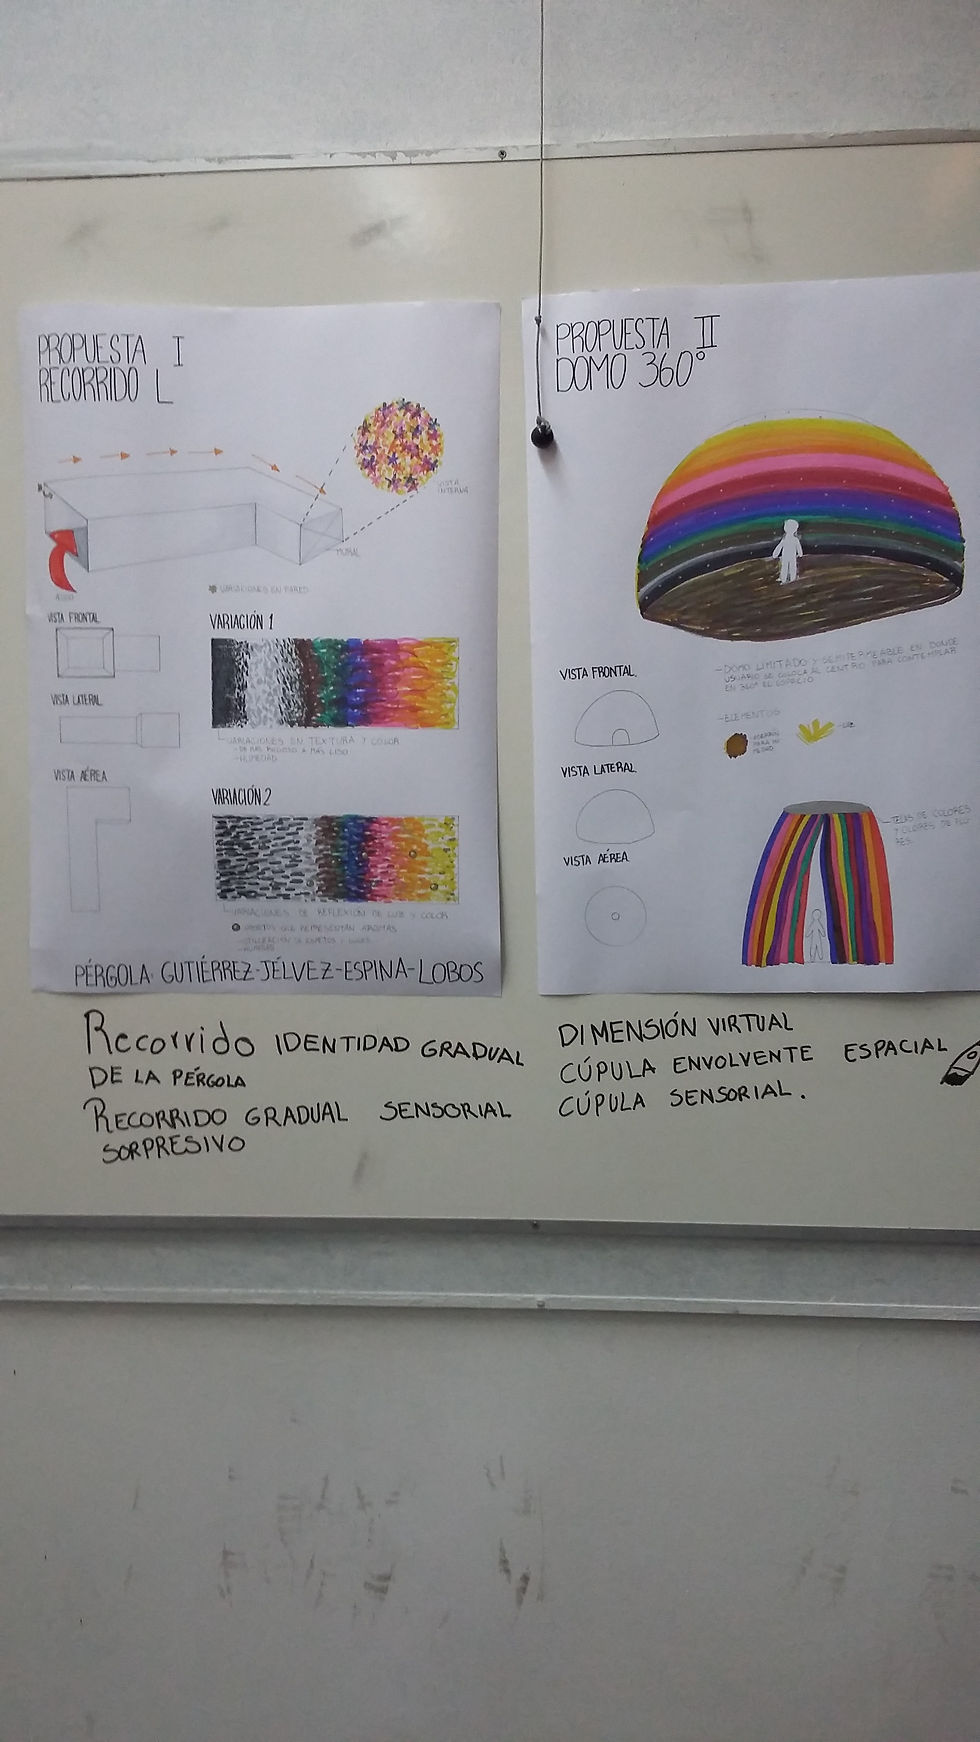 PROPUESTA I
RECORRIDO L
VISTA
INTERNA
MURAL
VARIACIONES EN PARED
VISTA FRONTAL
VISTA LATERAL
VISTA AÉREA
VARIACIÓN 1
VARIACIONES EN TEXTURA Y COLOR
-DE MÁS RUGOSO A MÁS LISO
-HUMEDAD
VARIACIÓN 2
VARIACIONES DE REFLEXIÓN DE LUZ Y COLOR
OBJETOS QUE REPRESENTAN AROMAS
PÉRGOLA: GUTIÉRREZ-JÉLVEZ-ESPINA-LOBOS
Recorrido IDENTIDAD GRADUAL
DE LA PÉRGOLA
RECORRIDO GRADUAL SENSORIAL
SORPRESIVO
PROPUESTA II
DOMO 360°
VISTA FRONTAL
VISTA LATERAL
VISTA AÉREA
-DOMO LIMITADO Y SEMIPERMEABLE EN DONDE
USUARIO SE COLOCA AL CENTRO PARA CONTEMPLAR
EN 360° EL ESPACIO
-ELEMENTOS
-LUZ
-TELAS DE COLORES
Y OLORES DE FLO
RES.
DIMENSIÓN VIRTUAL
CÚPULA ENVOLVENTE ESPACIAL
CÚPULA SENSORIAL.